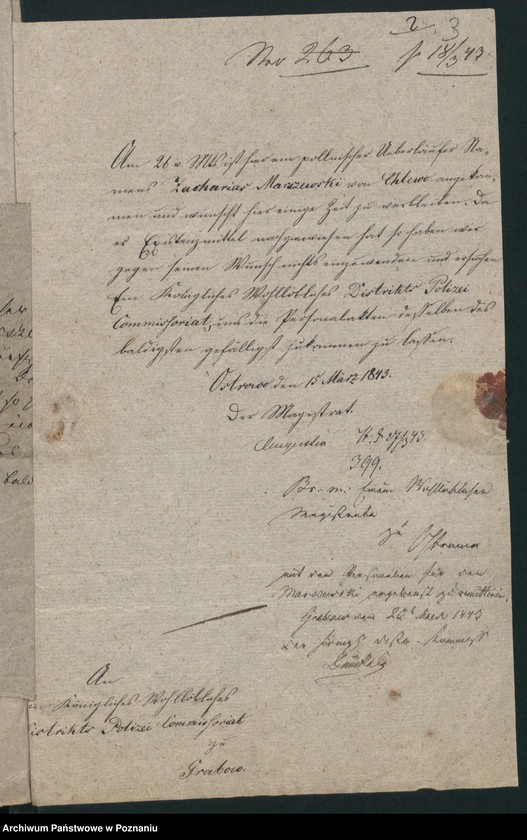 2 3
Nro 263 p 18/3 43.
Am 26 v. Mts ist hier ein pollnischer Ueberläufer Na-
mens Zacharias Marszewski von Chlewo angekom-
men und wünscht hier einige Zeit zu verbleiben. Da
er Existenzmittel nachgewiesen hat so haben wir
gegen seinen Wunsch nichts einzuwenden und ersuchen
Ein Königliches Wohllöbliches Distrikts Polizei
Commissoriat, uns die Personalakten desselben des
baldigsten gefälligst zukommen zu lassen.
Ostrowo den 15 März 1843.
Der Magistrat.
27/3 43
399.
Br. m. Einem Wohllöblichen
Magistrate
zu
mit den Personalien für den
Marszewski ergebenst zu remittiren,
Grabow den 26t März 1843
An
Königliches Wohllöbliches
istrikts Polizei Commissoriat
zu
Grabow.
Archiwum Państwowe w Poznaniu